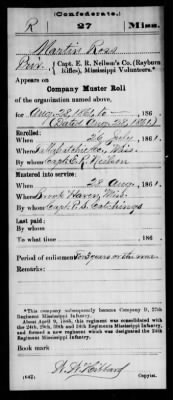 (Confederate.)
R 27 Miss.
Martin Ross
Pvt., Capt. E. R. Neilson's Co. (Rayburn
Rifles), Mississippi Volunteers.*
Appears on
Company Muster Roll
of the organization named above,
for Aug. 22, 1861, to , 186 .
(Dated Aug. 22, 1861.)
Enrolled:
When 26 July, 1861.
Where Miss.
By whom Capt. E. R. Neilson
Mustered into service:
When 22 Aug., 1861.
Where Brook Haven, Miss.
By whom Capt. R. S. Catchings
Last paid:
By whom
To what time , 186 .
Period of enlistment for 3 years or the war
Remarks:
*This company subsequently became Company D, 27th
Regiment Mississippi Infantry.
About April 9, 1865, this regiment was consolidated with
the 24th, 29th, 30th and 34th Regiments Mississippi Infantry,
and formed a new regiment which was designated the 24th
Regiment Mississippi Infantry.
Book mark
(642) Copyist.